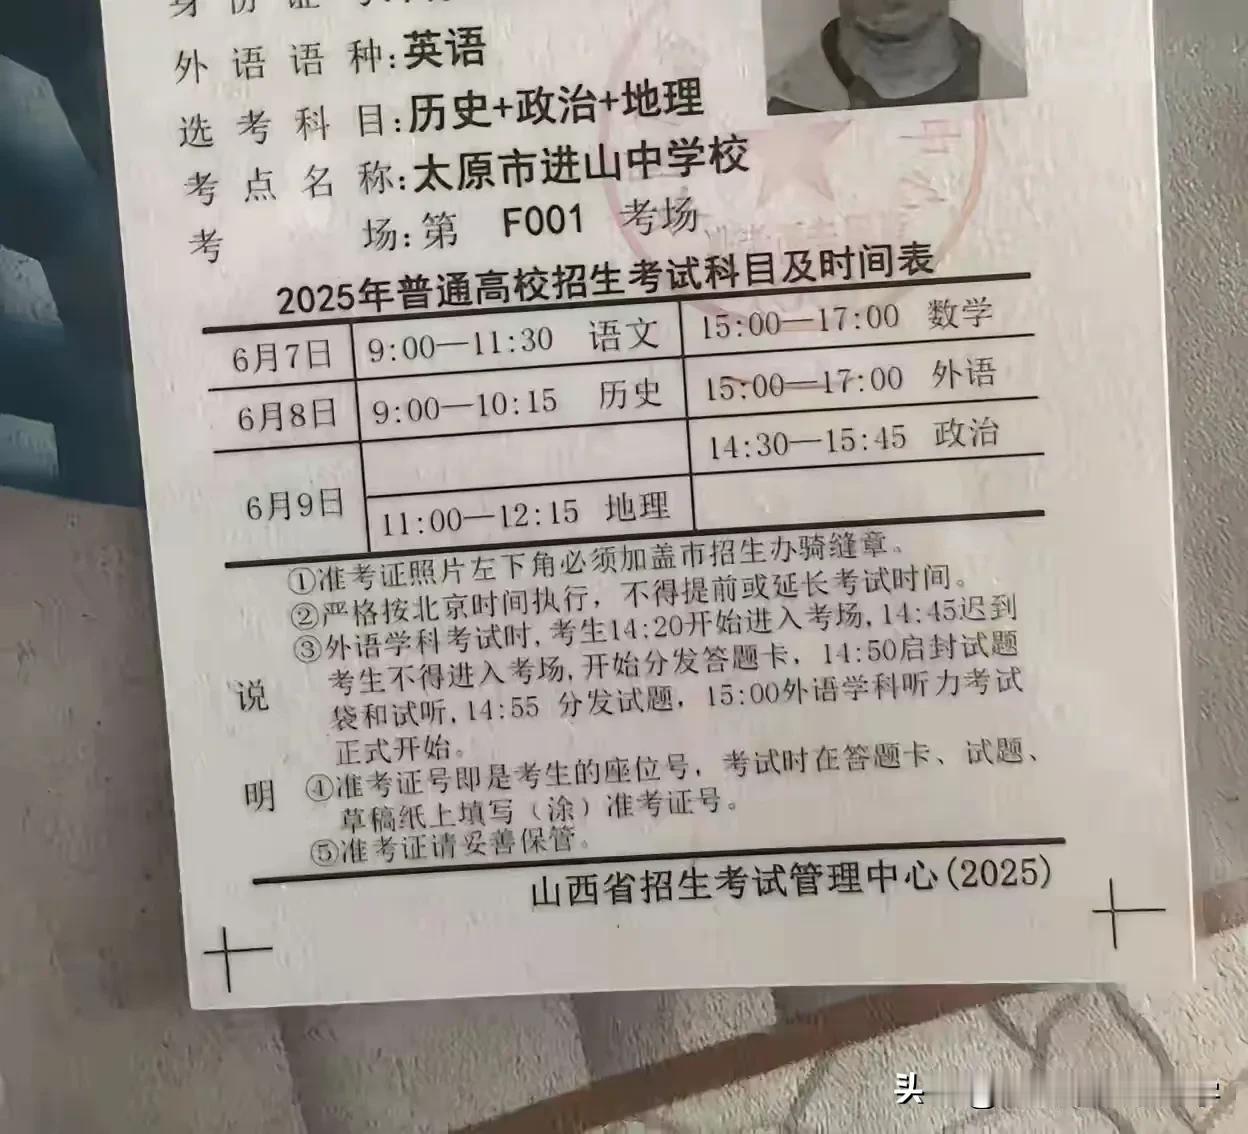 身份证号:
外语语种:英语
选考科目:历史+政治+地理
考点名称:太原市进山中学校
考场:第 F001 考场
2025年普通高校招生考试科目及时间表
6月7日 9:00—11:30 语文 15:00—17:00 数学
6月8日 9:00—10:15 历史 15:00—17:00 外语
14:30—15:45 政治
6月9日
11:00—12:15 地理
说明
①准考证照片左下角必须加盖市招生办骑缝章。
②严格按北京时间执行，不得提前或延长考试时间。
③外语学科考试时,考生14:20开始进入考场,14:45迟到
考生不得进入考场,开始分发答题卡，14:50启封试题
袋和试听,14:55 分发试题，15:00外语学科听力考试
正式开始。
④准考证号即是考生的座位号，考试时在答题卡、试题、
草稿纸上填写（涂）准考证号。
⑤准考证请妥善保管。
山西省招生考试管理中心(2025)
头